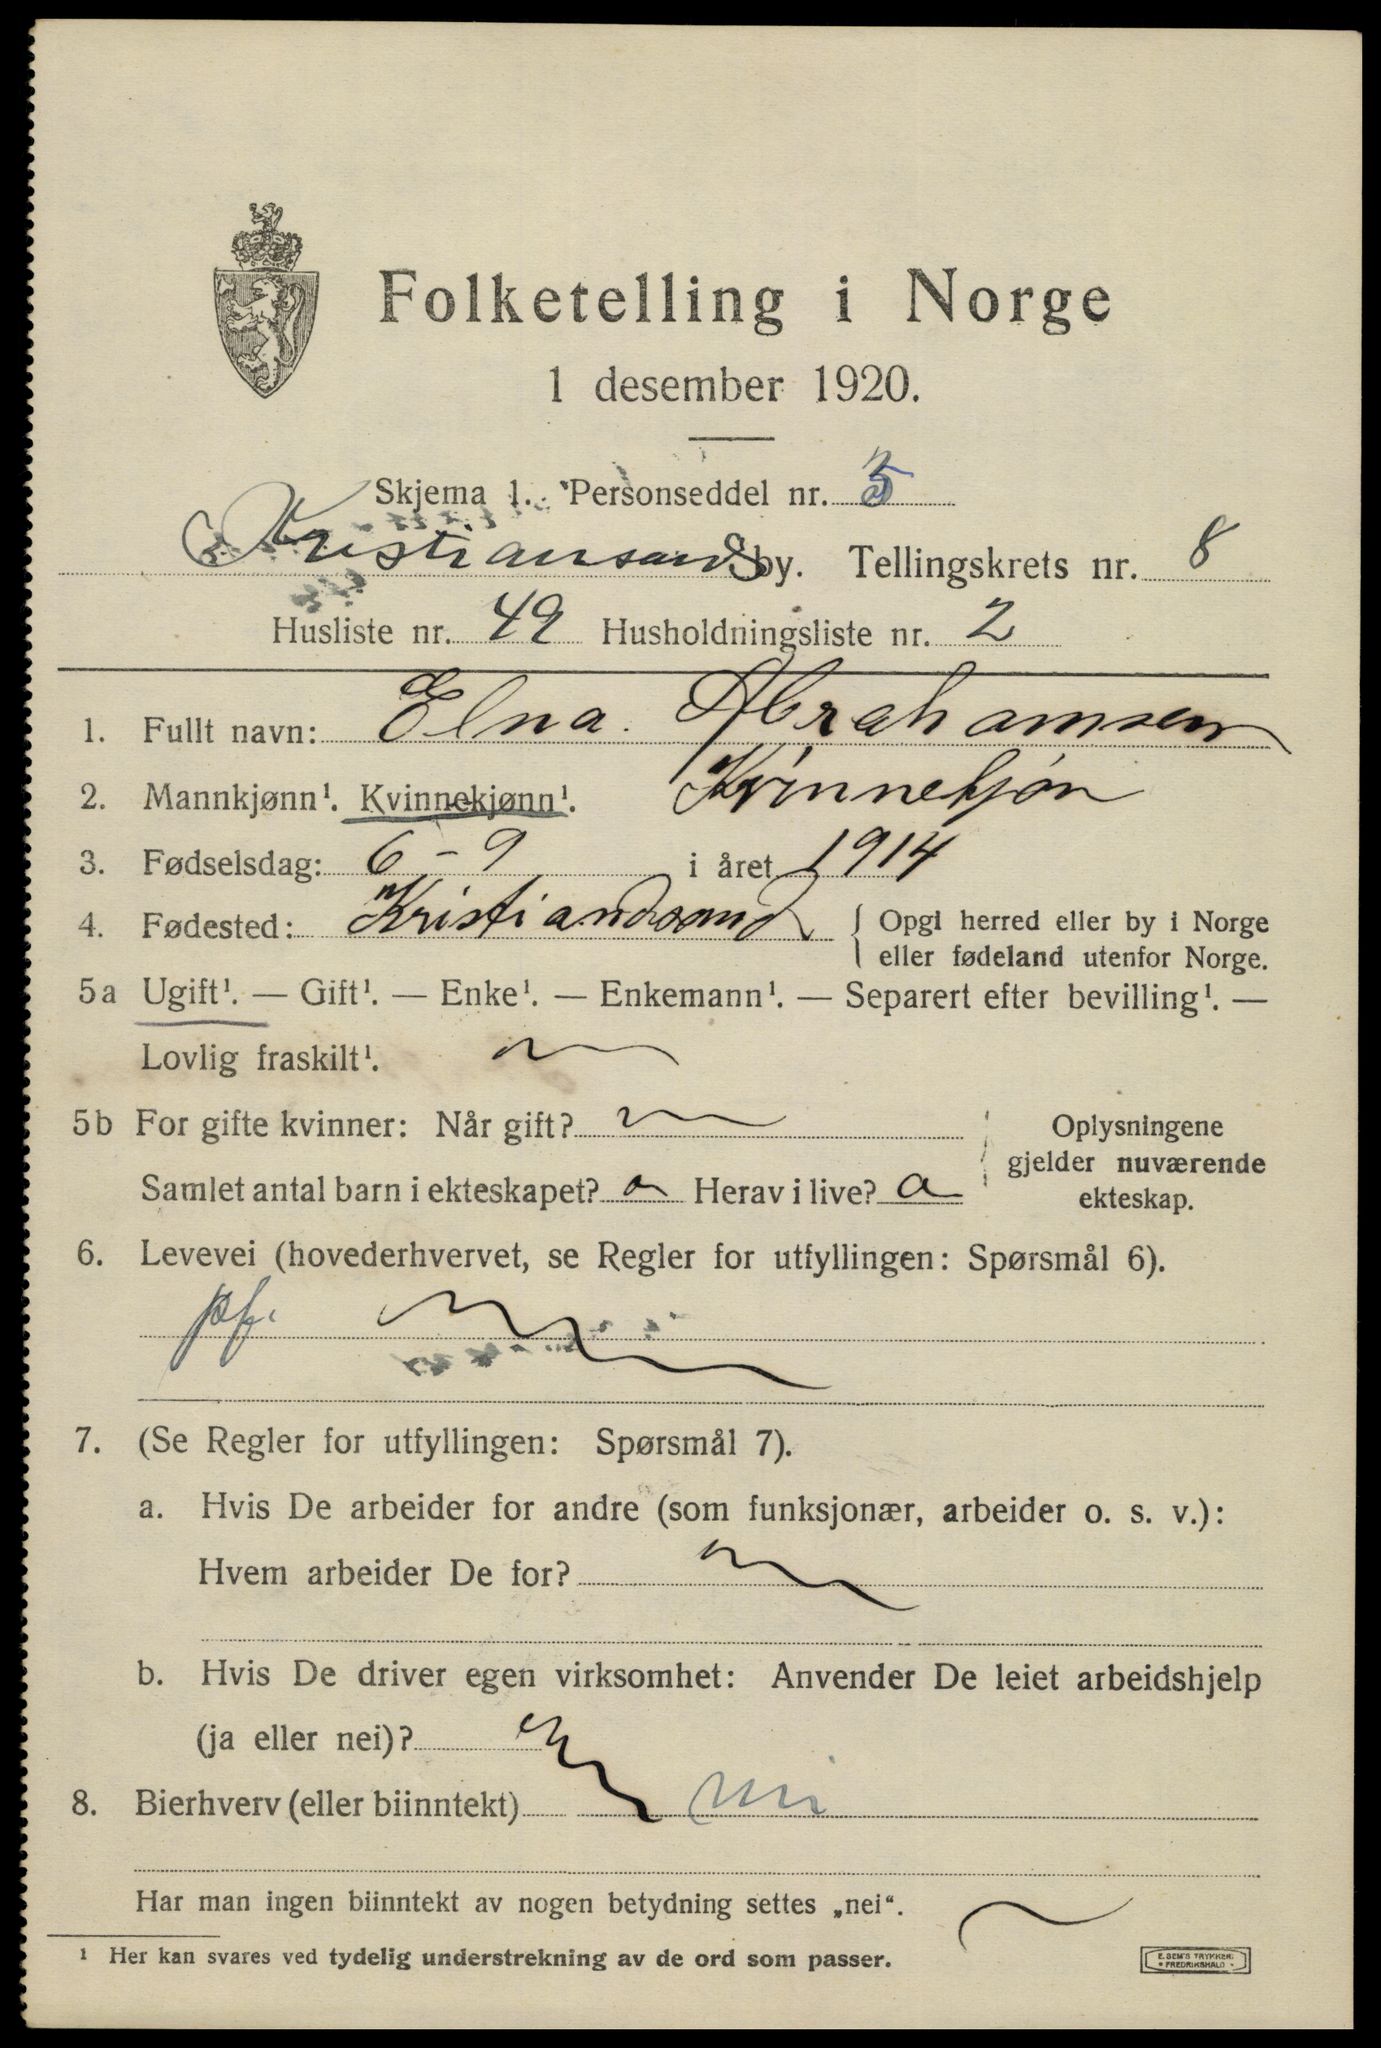 Folketelling i Norge
1 desember 1920.
Skjema 1. Personseddel nr. 5
Kristiansands by. Tellingskrets nr. 8
Husliste nr. 49 Husholdningsliste nr. 2
1. Fullt navn: Elna Abrahamsen
2. Mannkjønn¹. Kvinnekjønn¹. Kvinnekjøn
3. Fødselsdag: 6-9 i året 1914
4. Fødested: Kristiandsand { Opgi herred eller by i Norge
eller fødeland utenfor Norge.
5a Ugift¹. — Gift¹. — Enke¹. — Enkemann¹. — Separert efter bevilling¹. —
Lovlig fraskilt¹.
5b For gifte kvinner: Når gift? Oplysningene
gjelder nuværende
Samlet antal barn i ekteskapet? Herav i live? ekteskap.
6. Levevei (hovederhvervet, se Regler for utfyllingen: Spørsmål 6).
pf.
7. (Se Regler for utfyllingen: Spørsmål 7).
a. Hvis De arbeider for andre (som funksjonær, arbeider o. s. v.):
Hvem arbeider De for?
b. Hvis De driver egen virksomhet: Anvender De leiet arbeidshjelp
(ja eller nei)?
8. Bierhverv (eller biinntekt) nei
Har man ingen biinntekt av nogen betydning settes „nei“.
¹ Her kan svares ved tydelig understrekning av de ord som passer.
E. SEM'S TRYKKERI
FREDRIKSHALD